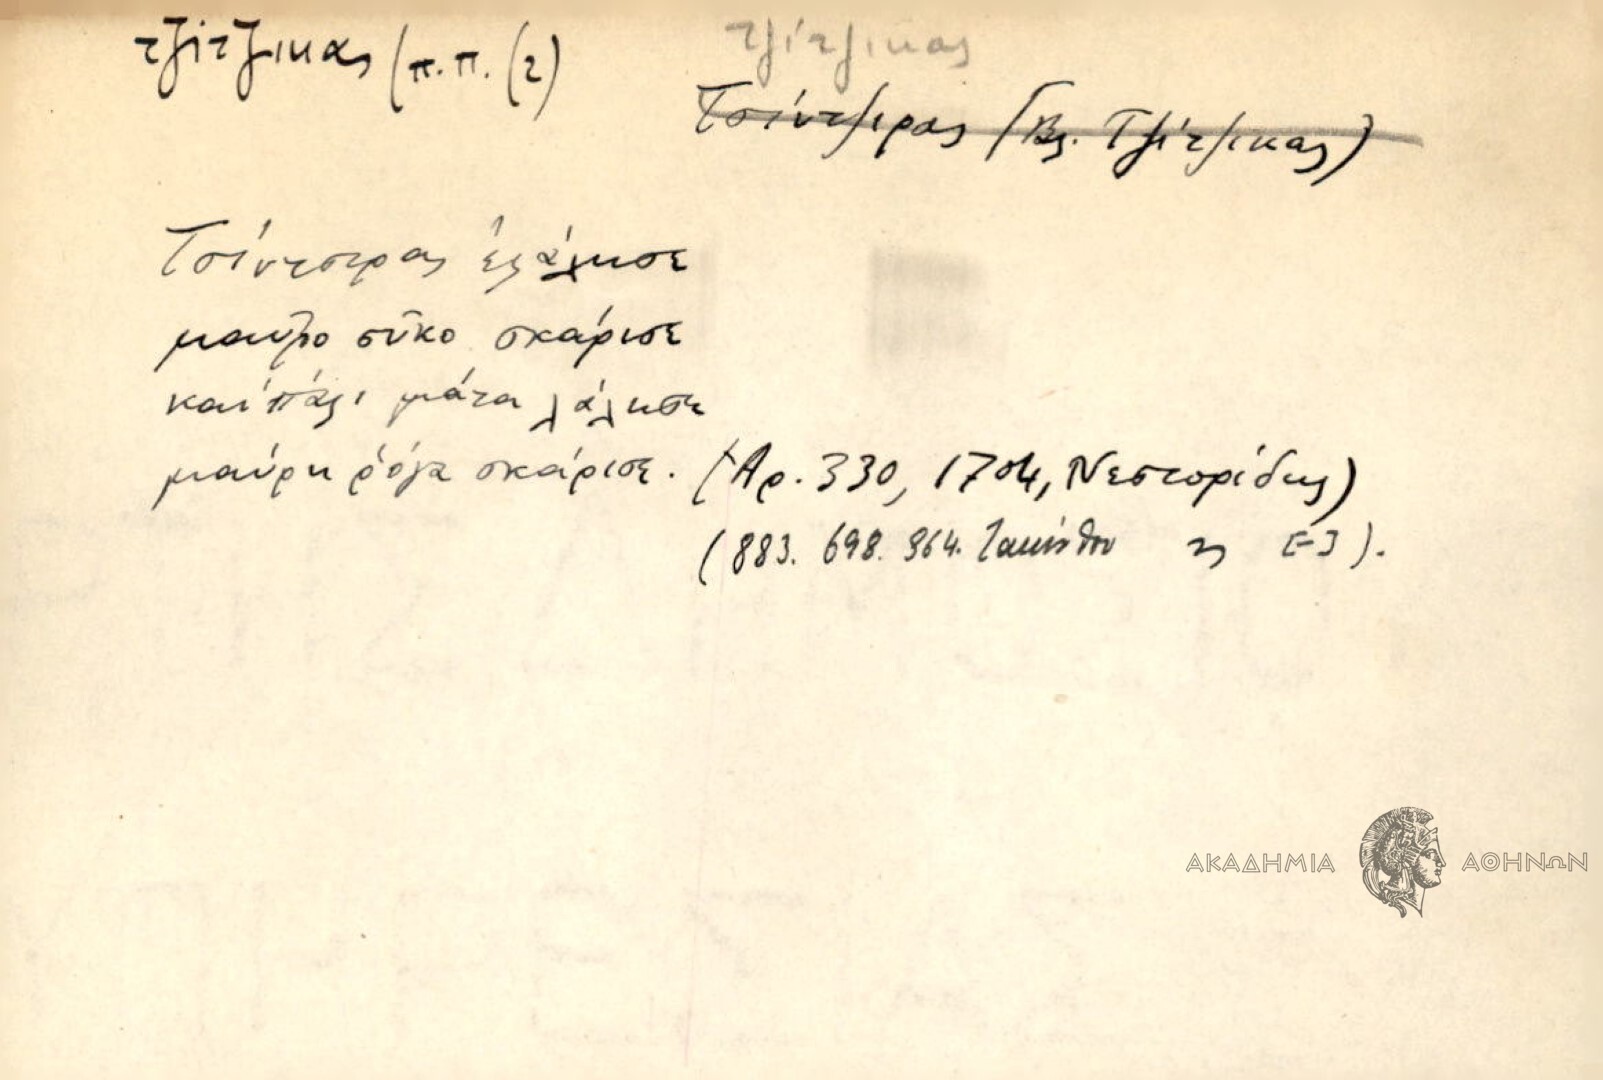 τζίτζικας (π.π. (2)
τζίτζικας
Τσίντζιρας (Βλ. Τζίτζικας)
Τσίντσιρας ἐλάλησε
μαῦρο σῦκο σκάρισε
καὶ πάλι μάτα λάλησε
μαύρη ρόγα σκάρισε. (Ἀρ. 330, 1704, Νεστορίδης)
(883. 698. 964. Ζακύνθου
ΑΚΑΔΗΜΙΑ ΑΘΗΝΩΝ